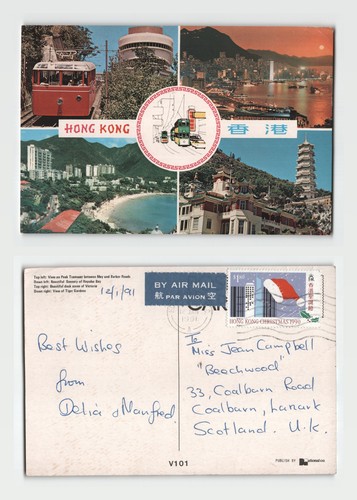 HONG KONG
香港
Top left: View on Peak Tramways between May and Barker Roads
Down left: Beautiful Scenery of Repulse Bay
Top right: Beautiful dusk scene of Victoria
Down right: View of Tiger Gardens
12/1/91
BY AIR MAIL
航空 PAR AVION
$1.80
HONG KONG CHRISTMAS 1990
Best Wishes
from
Delia & Manfred.
To
Miss Jean Campbell
"Beechwood"
33, Coalburn Road
Coalburn, Lanark
Scotland. U.K.
V101
PUBLISHED BY